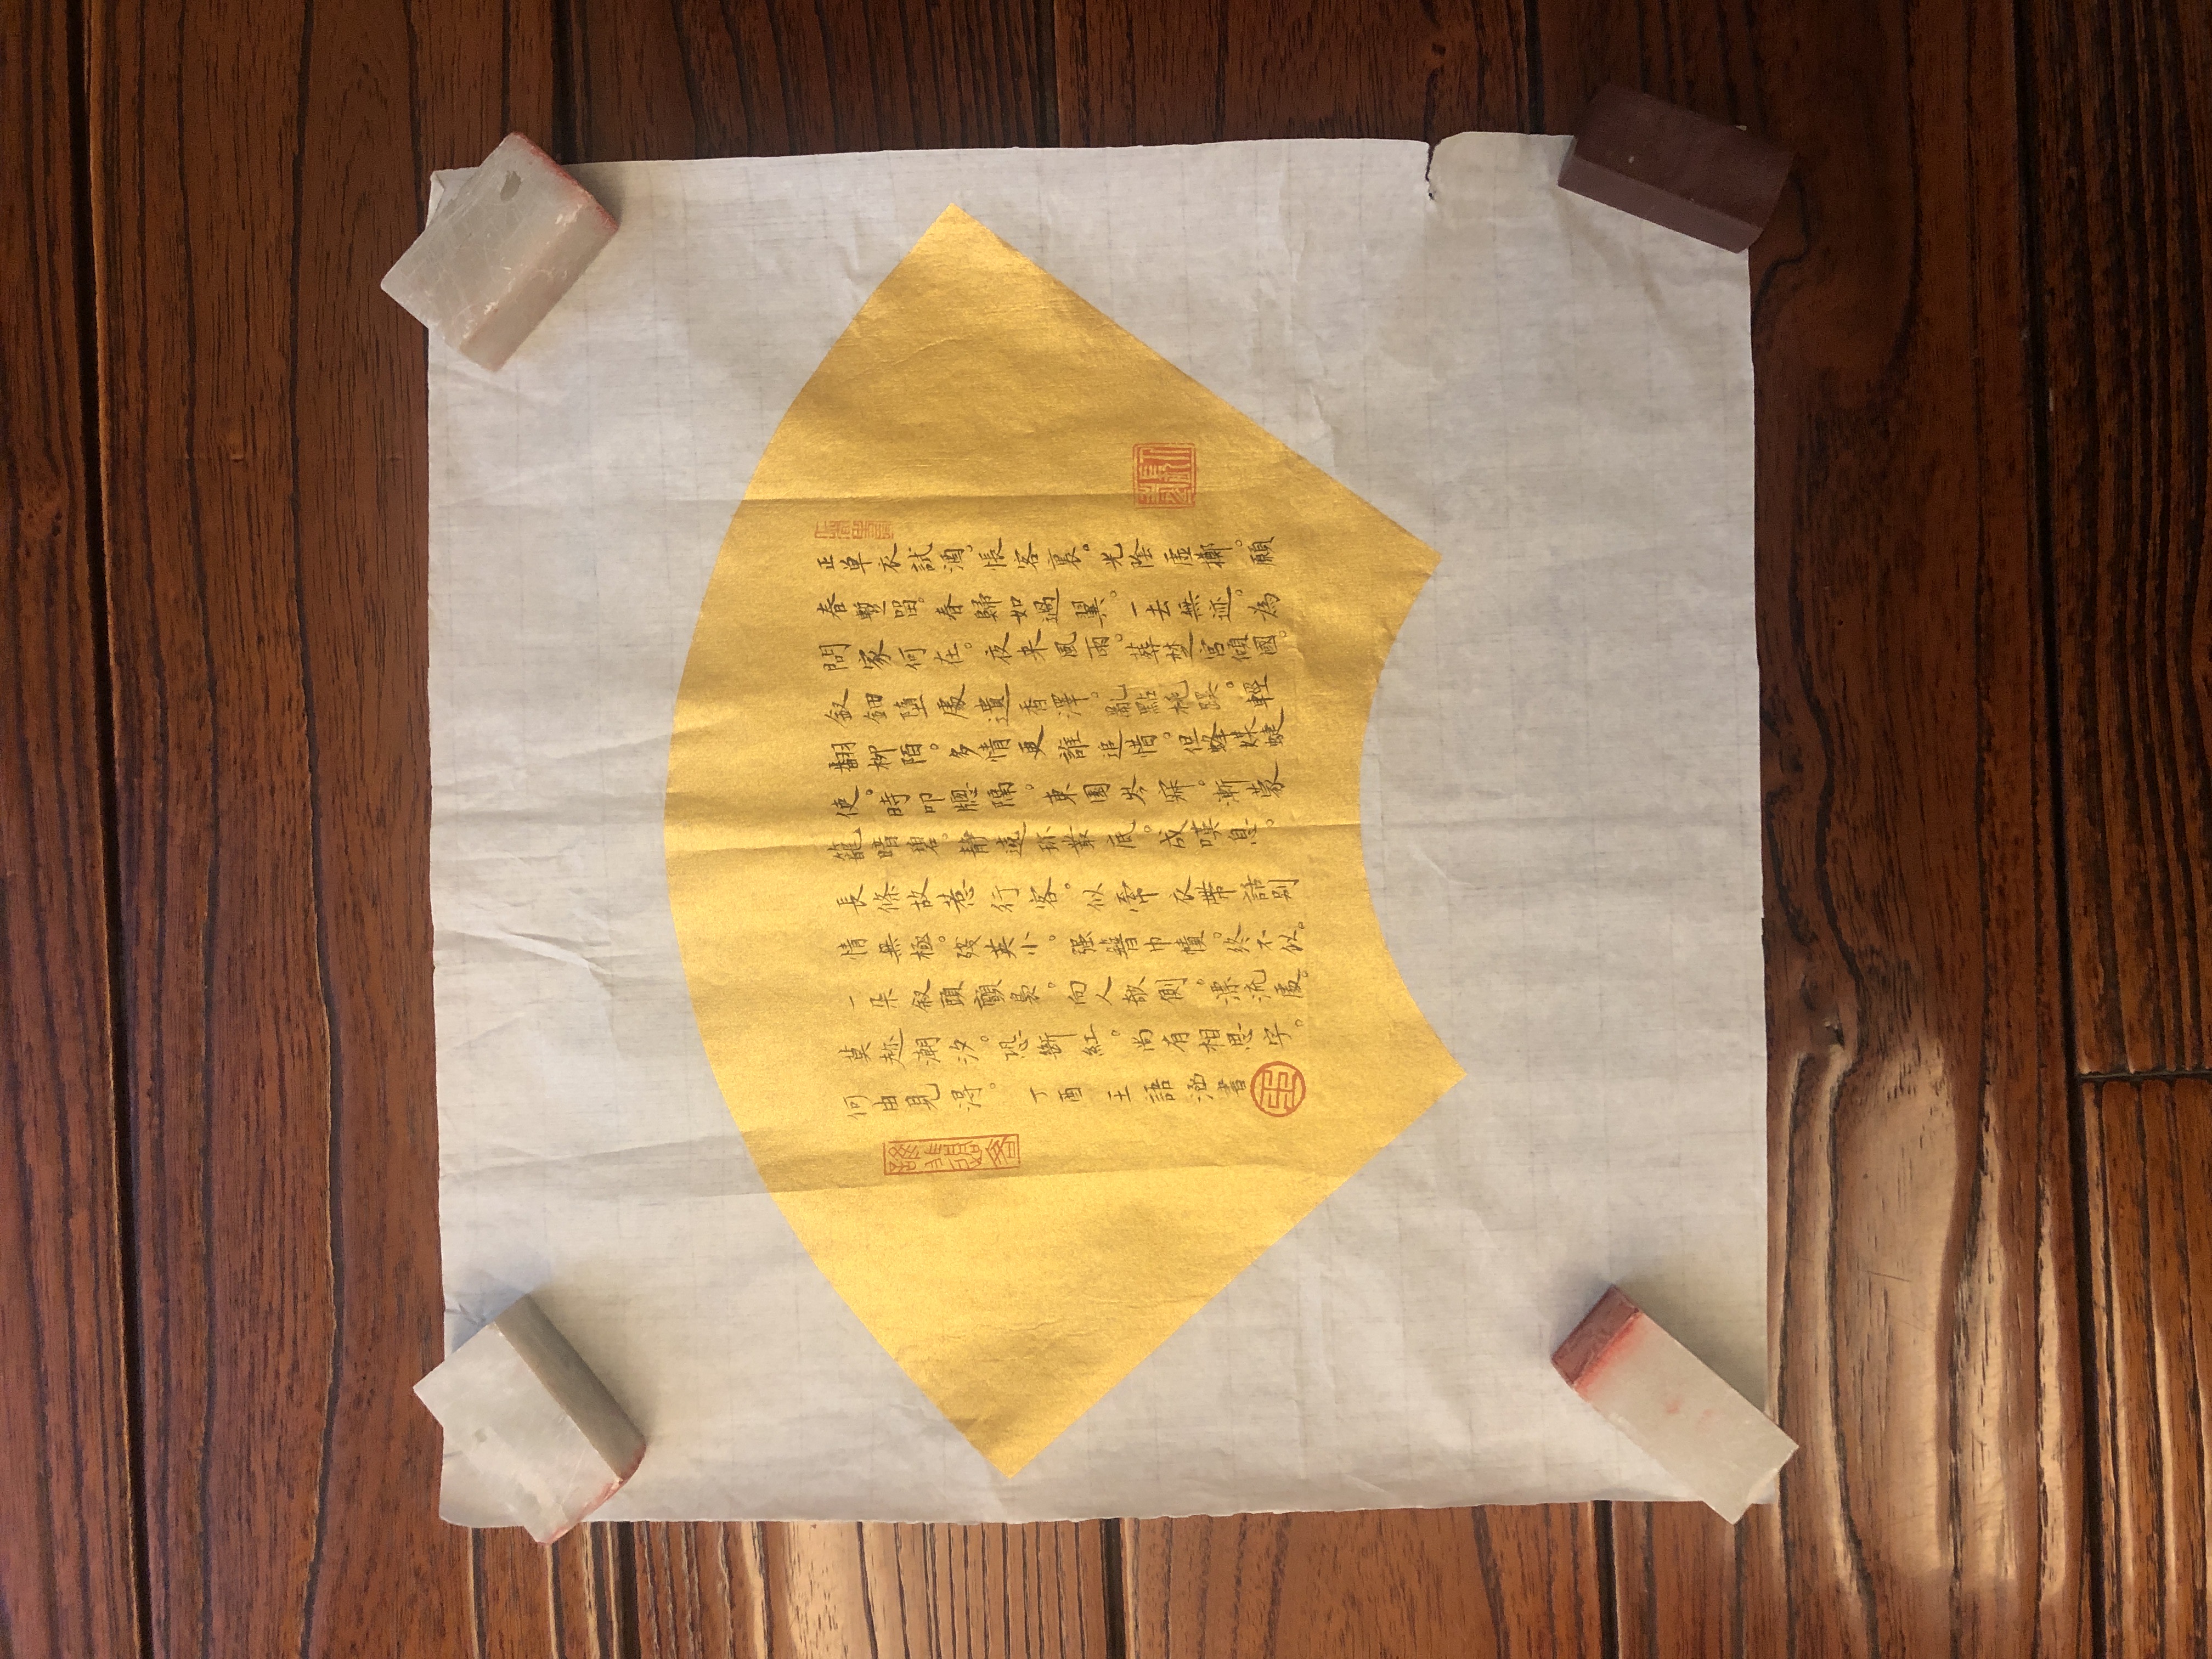 正单衣試酒。悵客裏。光陰虛擲。願
春暫留。春歸如過翼。一去無迹。為
問家何在。夜来風雨。葬楚宮傾國。
釵鈿墮處遺香澤。亂點桃蹊。輕
翻柳陌。多情更誰追惜。但蜂媒蝶
使。時叩牕隔。東園岑寂。漸蒙
籠暗碧。静遶珎叢底。成嘆息。
長條故惹行客。似牽衣帶話别
情無極。殘英小。强簪巾幘。終不似。
一朵釵頭顫裊。向人欹側。漂流處。
莫趂潮汐。恐斷紅。尚有相思字。
何由見淂。 丁酉 王語涵書